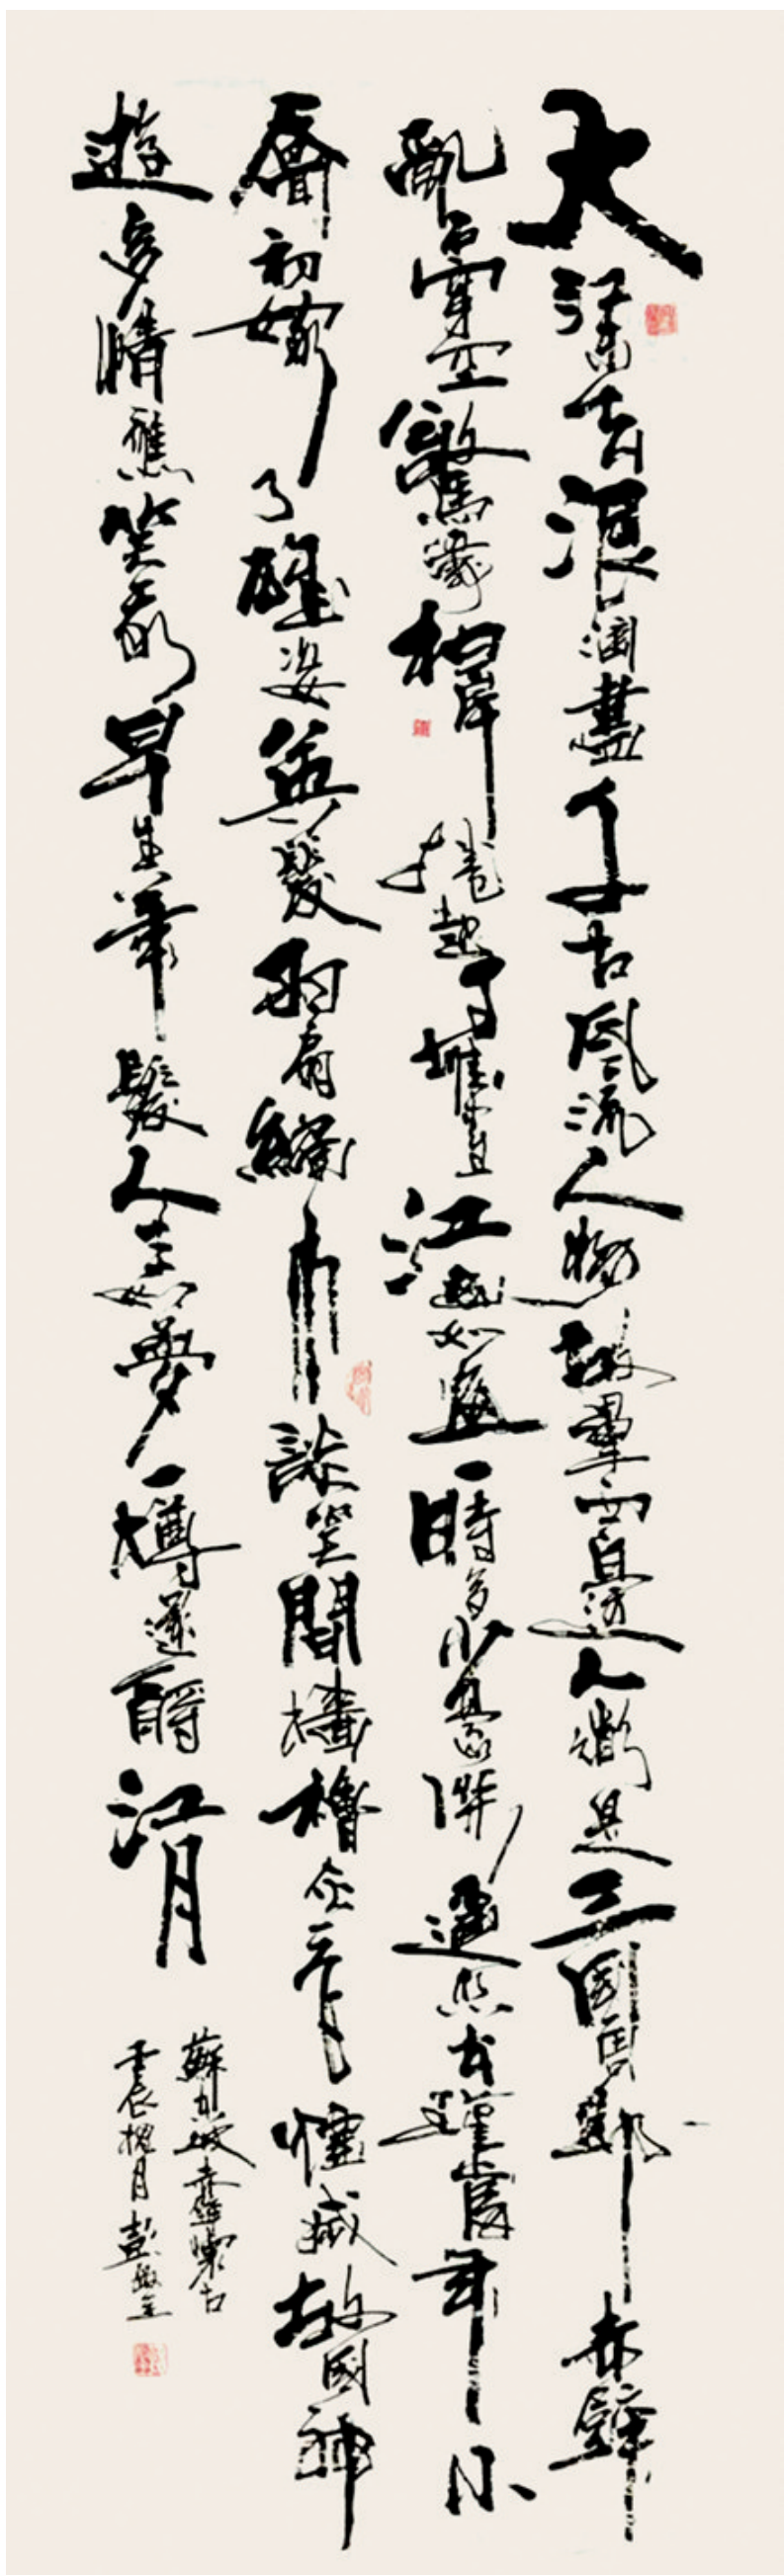 大江東去浪淘盡千古風流人物故壘西邊人道是三國周郎赤壁
亂石穿空驚濤拍岸捲起千堆雪江山如畫一時多少豪傑遙想公瑾當年小
喬初嫁了雄姿英發羽扇綸巾談笑間檣櫓灰飛煙滅故國神
遊多情應笑我早生華髮人生如夢一樽還酹江月
蘇東坡赤壁懷古
壬辰槐月彭